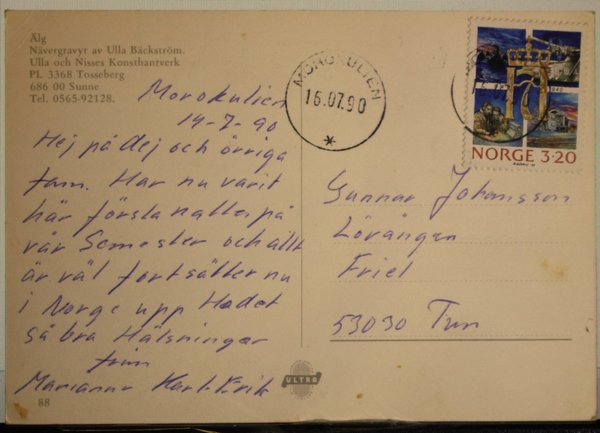 Älg
Nävergravyr av Ulla Bäckström.
Ulla och Nisses Konsthantverk
PL 3368 Tosseberg
686 00 Sunne
Tel. 0565-92128.
Morokulien
14-7-90
Hej på dej och övriga
fam. Har nu varit
här första natten på
vår Semester och allt
är väl fortsätter nu
i Norge upp Hadet
så bra Hälsningar
från
Marianne Karl-Erik
88
MOROKULIEN
16.07.90
NORGE 3·20
Gunnar Johansson
Lövängen
Friel
53030 Tun
ULTRA